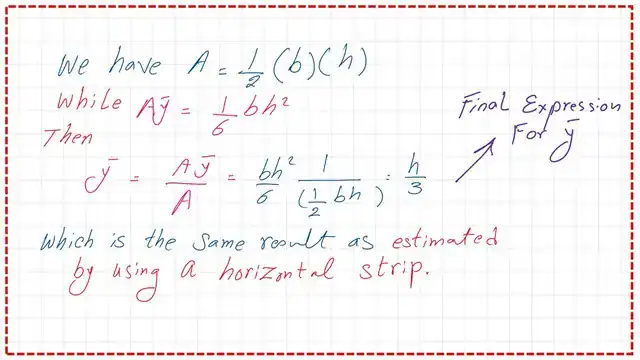 We have A = 1/2 (b)(h)
While Aȳ = 1/6 bh²
Then
ȳ = Aȳ/A = bh²/6 1/(1/2 bh) = h/3
Final Expression
For ȳ
which is the same result as estimated
by using a horizontal strip.